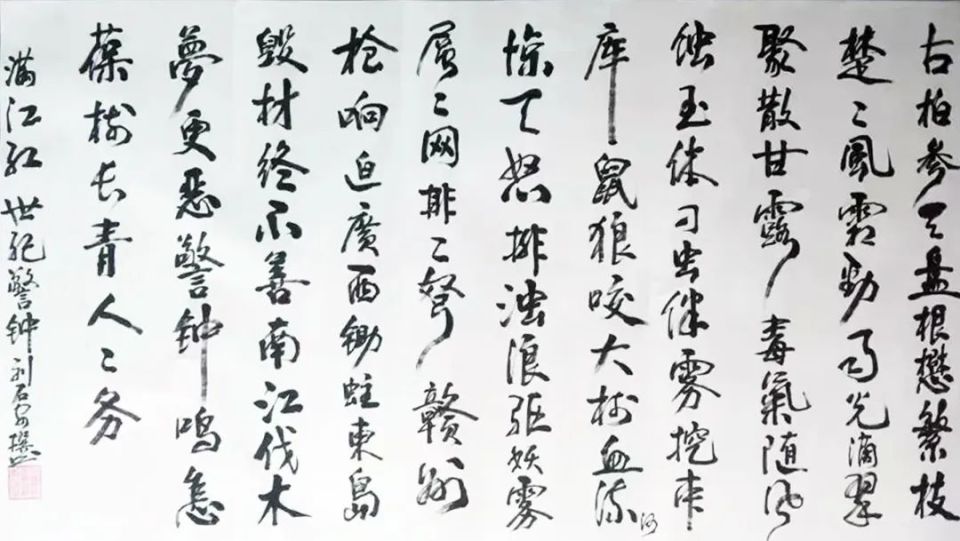 古柏参天盘根懋繁枝
楚〻風霜勁日光滴翠
聚散甘露毒氣随风
蚀玉体刁虫伴雾挖
库鼠狼咬大树血流河
惊天怒排浊浪驱妖雾
层〻网排〻弩赣州
枪响迫廣西锄蛀東島
毁材终不善南江伐木
夢更恶警钟鸣急
葆树长青人〻务
满江红世纪警钟刘石安撰